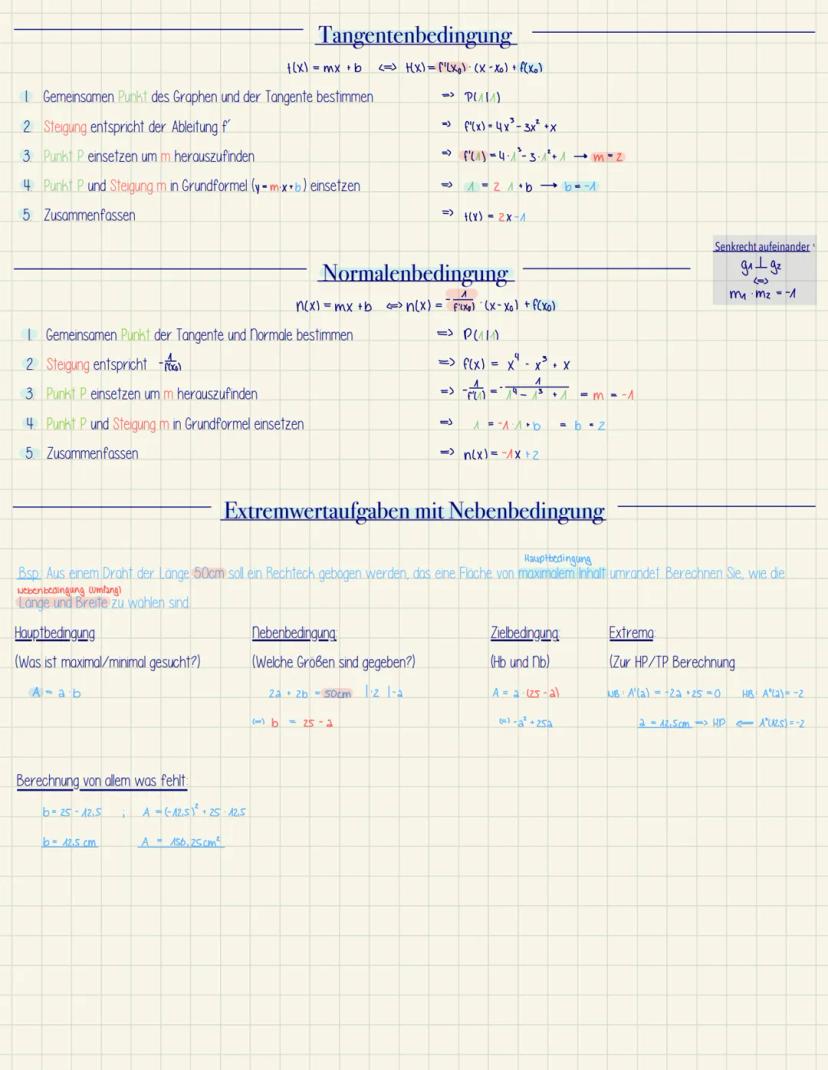 Tangentenbedingung
t(x) = mx + b <=> t(x) = f'(x₀) · (x - x₀) + f(x₀)
1 Gemeinsamen Punkt des Graphen und der Tangente bestimmen => P(1|1)
2 Steigung entspricht der Ableitung f' => f'(x) = 4x³ - 3x² + x
3 Punkt P einsetzen um m herauszufinden => f'(1) = 4·1³ - 3·1² + 1 → m = 2
4 Punkt P und Steigung m in Grundformel (y = m·x + b) einsetzen => 1 = 2·1 + b → b = -1
5 Zusammenfassen => t(x) = 2x - 1
Senkrecht aufeinander
g₁ ⊥ g₂
<=>
m₁ · m₂ = -1
Normalenbedingung
n(x) = mx + b <=> n(x) = -1/f'(x₀) · (x - x₀) + f(x₀)
1 Gemeinsamen Punkt der Tangente und Normale bestimmen => P(1|1)
2 Steigung entspricht -1/f'(x₀) => f(x) = x⁴ - x³ + x
3 Punkt P einsetzen um m herauszufinden => -1/f'(1) = -1/1⁴ - 1³ + 1 = m = -1
4 Punkt P und Steigung m in Grundformel einsetzen => 1 = -1·1 + b = b = 2
5 Zusammenfassen => n(x) = -1x + 2
Extremwertaufgaben mit Nebenbedingung
Hauptbedingung
Bsp: Aus einem Draht der Länge 50cm soll ein Rechteck gebogen werden, das eine Fläche von maximalem Inhalt umrandet. Berechnen Sie, wie die
Nebenbedingung (Umfang)
Länge und Breite zu wählen sind
Hauptbedingung Nebenbedingung: Zielbedingung: Extrema:
(Was ist maximal/minimal gesucht?) (Welche Größen sind gegeben?) (Hb und Nb) (Zur HP/TP Berechnung
A = a·b 2a + 2b = 50cm |:2 |-a A = a·(25 - a) NB: A'(a) = -2a + 25 = 0 HB: A"(a) = -2
(=) b = 25 - a (=) -a² + 25a a = 12,5cm => HP <= A"(12,5) = -2
Berechnung von allem was fehlt:
b = 25 - 12,5 ; A = (-12,5)² + 25 · 12,5
b = 12,5 cm A = 156,25cm²